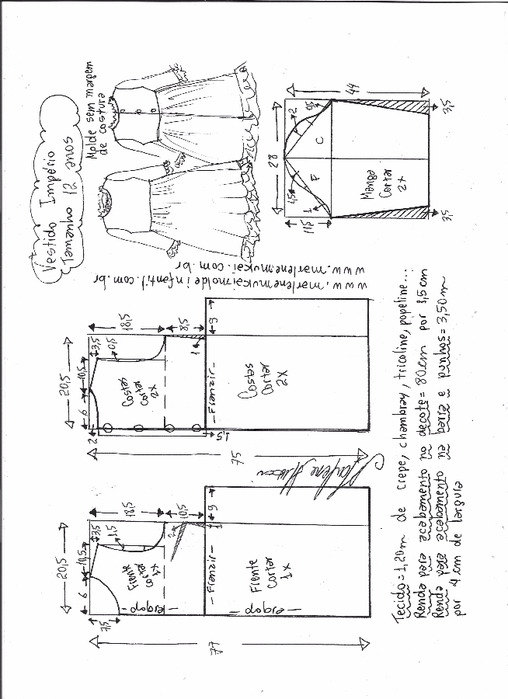 Vestido Império
Tamanho 12 anos
Molde sem margem
de costura
www.marlenemukai.com.br
www.marlenemukaimoldeinfantil.com.br
28
44
1,5
2
F
C
1
11,5
Manga
Cortar
2x
3,5
3,5
20,5
6
10,5
3,5
2
0,5
18,5
Costas
Cortar
2x
8,5
1
1,5
9
Franzir
Costas
Cortar
2x
75
20,5
6
10,5
3,5
7,5
1,5
18,5
Frente
Cortar
1x
dobra
2
10,5
1
9
Franzir
Frente
Cortar
1x
dobra
77
Tecido = 1,20m de crepe, chambray, tricoline, popeline...
Renda para acabamento no decote = 80cm por 1,5cm
Renda para acabamento na barra e punhos = 3,50m
por 4 cm de largura